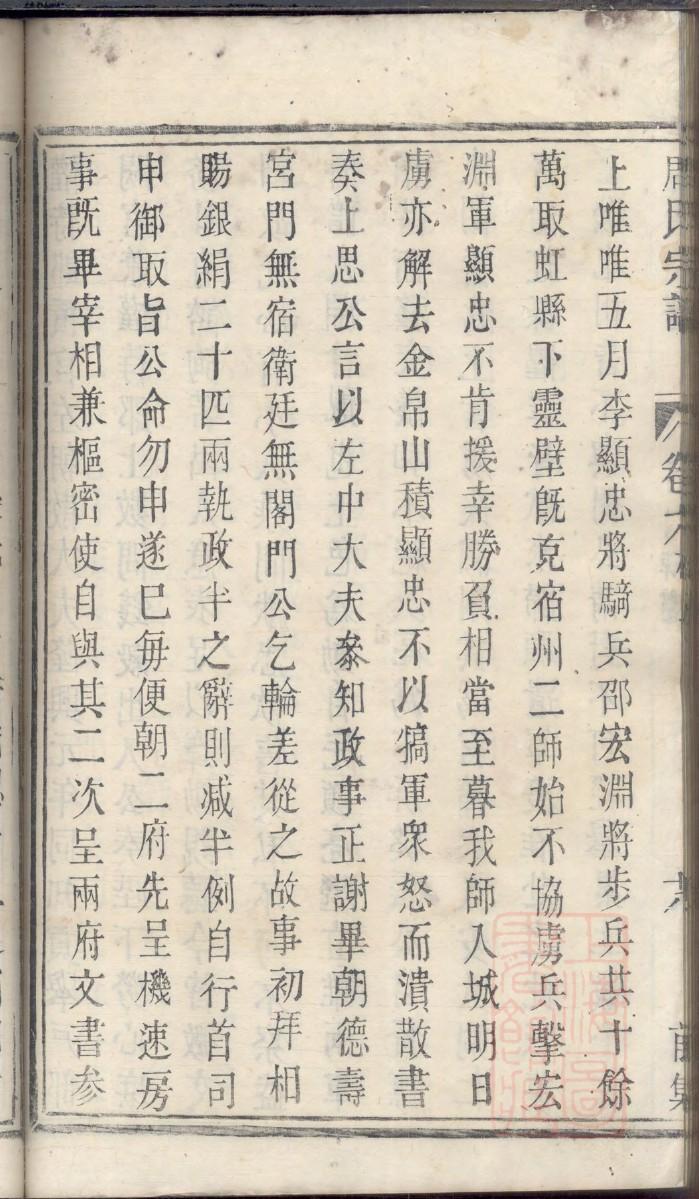 周氏宗譜
卷六
六
前集
上唯唯五月李顯忠將騎兵邵宏淵將步兵共十餘
萬取虹縣下靈壁旣克宿州二師始不協虜兵擊宏
淵軍顯忠不肯援幸勝負相當至暮我師入城明日
虜亦解去金帛山積顯忠不以犒軍衆怒而潰散書
奏上思公言以左中大夫叅知政事正謝畢朝德壽
宮門無宿衛廷無閣門公乞輪差從之故事初拜相
賜銀絹二十匹兩執政半之辭則减半例自行首司
申御取旨公命勿申遂巳毎便朝二府先呈機速房
事旣畢宰相兼樞密使自與其二次呈兩府文書参